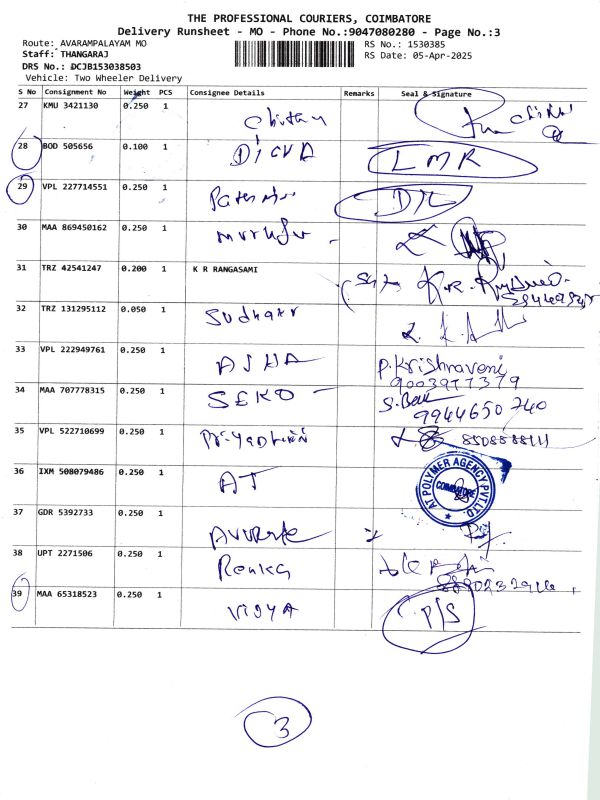 THE PROFESSIONAL COURIERS, COIMBATORE
Delivery Runsheet - MO - Phone No.:9047080280 - Page No.:3
Route: AVARAMPALAYAM MO RS No.: 1530385
Staff: THANGARAJ RS Date: 05-Apr-2025
DRS No.: DCJB153038503
Vehicle: Two Wheeler Delivery
S No Consignment No Weight PCS Consignee Details Remarks Seal & Signature
27 KMU 3421130 0.250 1
28 BOD 505656 0.100 1 LMR
29 VPL 227714551 0.250 1
30 MAA 869450162 0.250 1
31 TRZ 42541247 0.200 1 K R RANGASAMI
32 TRZ 131295112 0.050 1 Sudhakr
33 VPL 222949761 0.250 1 ASHA P.Krishnaveni
9003977379
34 MAA 707778315 0.250 1 SEKO
9944650740
35 VPL 522710699 0.250 1
36 IXM 508079486 0.250 1 AT AT POLYMER AGENCY PVT.LTD. COIMBATORE
37 GDR 5392733 0.250 1
38 UPT 2271506 0.250 1 Renka
39 MAA 65318523 0.250 1 VIDYA P/S
3